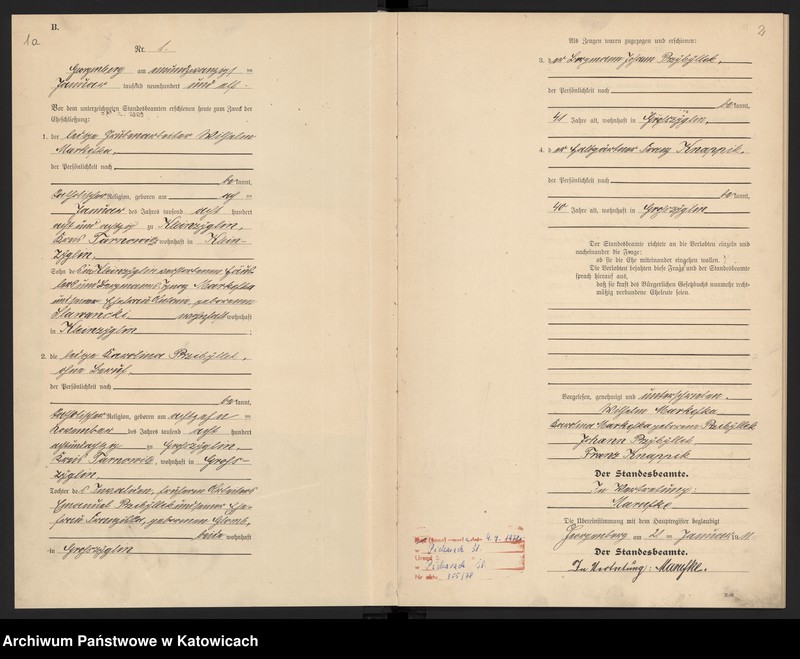 B.
1a
Nr. 1.
Georgenberg am einundzwanzigsten
Januar tausend neunhundert und elf.
Vor dem unterzeichneten Standesbeamten erschienen heute zum Zweck der
Eheschließung:
1. der ledige Grubenarbeiter Wilhelm
Markefka,
der Persönlichkeit nach
bekannt,
katholischer Religion, geboren am
Januar des Jahres tausend acht hundert
acht und achtzig zu Kleinzyglin,
Kreis Tarnowitz, wohnhaft in Klein-
zyglin,
Sohn des in Kleinzyglin verstorbenen
und Bergmanns Markefka
und seiner Ehefrau geborenen
wohnhaft
in Kleinzyglin
2. die ledige Karolina Przibyllek,
ohne Beruf,
der Persönlichkeit nach
bekannt,
katholischer Religion, geboren am achtzehnten
November des Jahres tausend acht hundert
achtundachtzig zu Groszyglin,
Kreis Tarnowitz, wohnhaft in Gross-
zyglin,
Tochter des Invaliden, früheren Arbeiters
Emanuel Przibyllek und seiner Ehe-
frau Franziska, geborenen
beide wohnhaft
in Groszyglin
2
Als Zeugen waren zugezogen und erschienen:
3. der Bergmann Johann Przibyllek,
der Persönlichkeit nach
bekannt,
41 Jahre alt, wohnhaft in Groszyglin,
4. der Franz Knappik,
der Persönlichkeit nach
bekannt,
40 Jahre alt, wohnhaft in Groszyglin
Der Standesbeamte richtete an die Verlobten einzeln und
nacheinander die Frage:
ob sie die Ehe miteinander eingehen wollen.
Die Verlobten bejahten diese Frage und der Standesbeamte
sprach hierauf aus,
daß sie kraft des Bürgerlichen Gesetzbuchs nunmehr recht-
mäßig verbundene Eheleute seien.
Vorgelesen, genehmigt und unterschrieben.
Wilhelm Markefka
Karolina Markefka geborene Przibyllek
Johann Przibyllek
Franz Knappik
Der Standesbeamte.
In Vertretung:
Die Übereinstimmung mit dem Hauptregister beglaubigt
Georgenberg am 21 ten Januar 19 11
Der Standesbeamte.
In Vertretung:
Nr aktu 355/78
Archiwum Państwowe w Katowicach